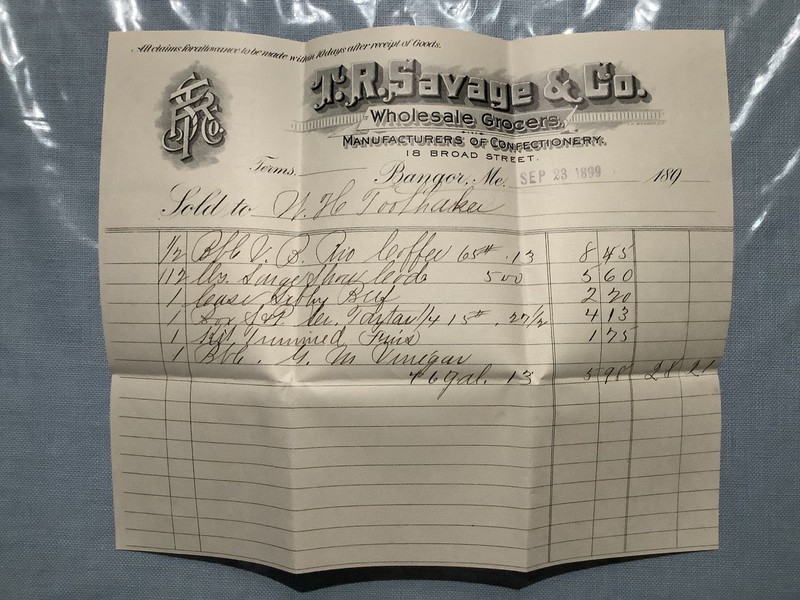 All claims for allowance to be made within 10 days after receipt of Goods.
T.R. Savage & Co.
Wholesale Grocers,
Manufacturers of Confectionery.
18 Broad Street.
Terms. Bangor, Me. SEP 23 1899 189
Sold to W. H. Toothaker
1/2 Bbl V. B. Rio Coffee 65# .13 8 45
112 lbs. Large Cod 500 5 60
1 Case Libby Beef 2 20
1 Box 15# .27 1/2 4 13
1 Kit Trimmed Fins 1 75
1 Bbl. G. M Vinegar
46 gal. 13 5 98 28 21